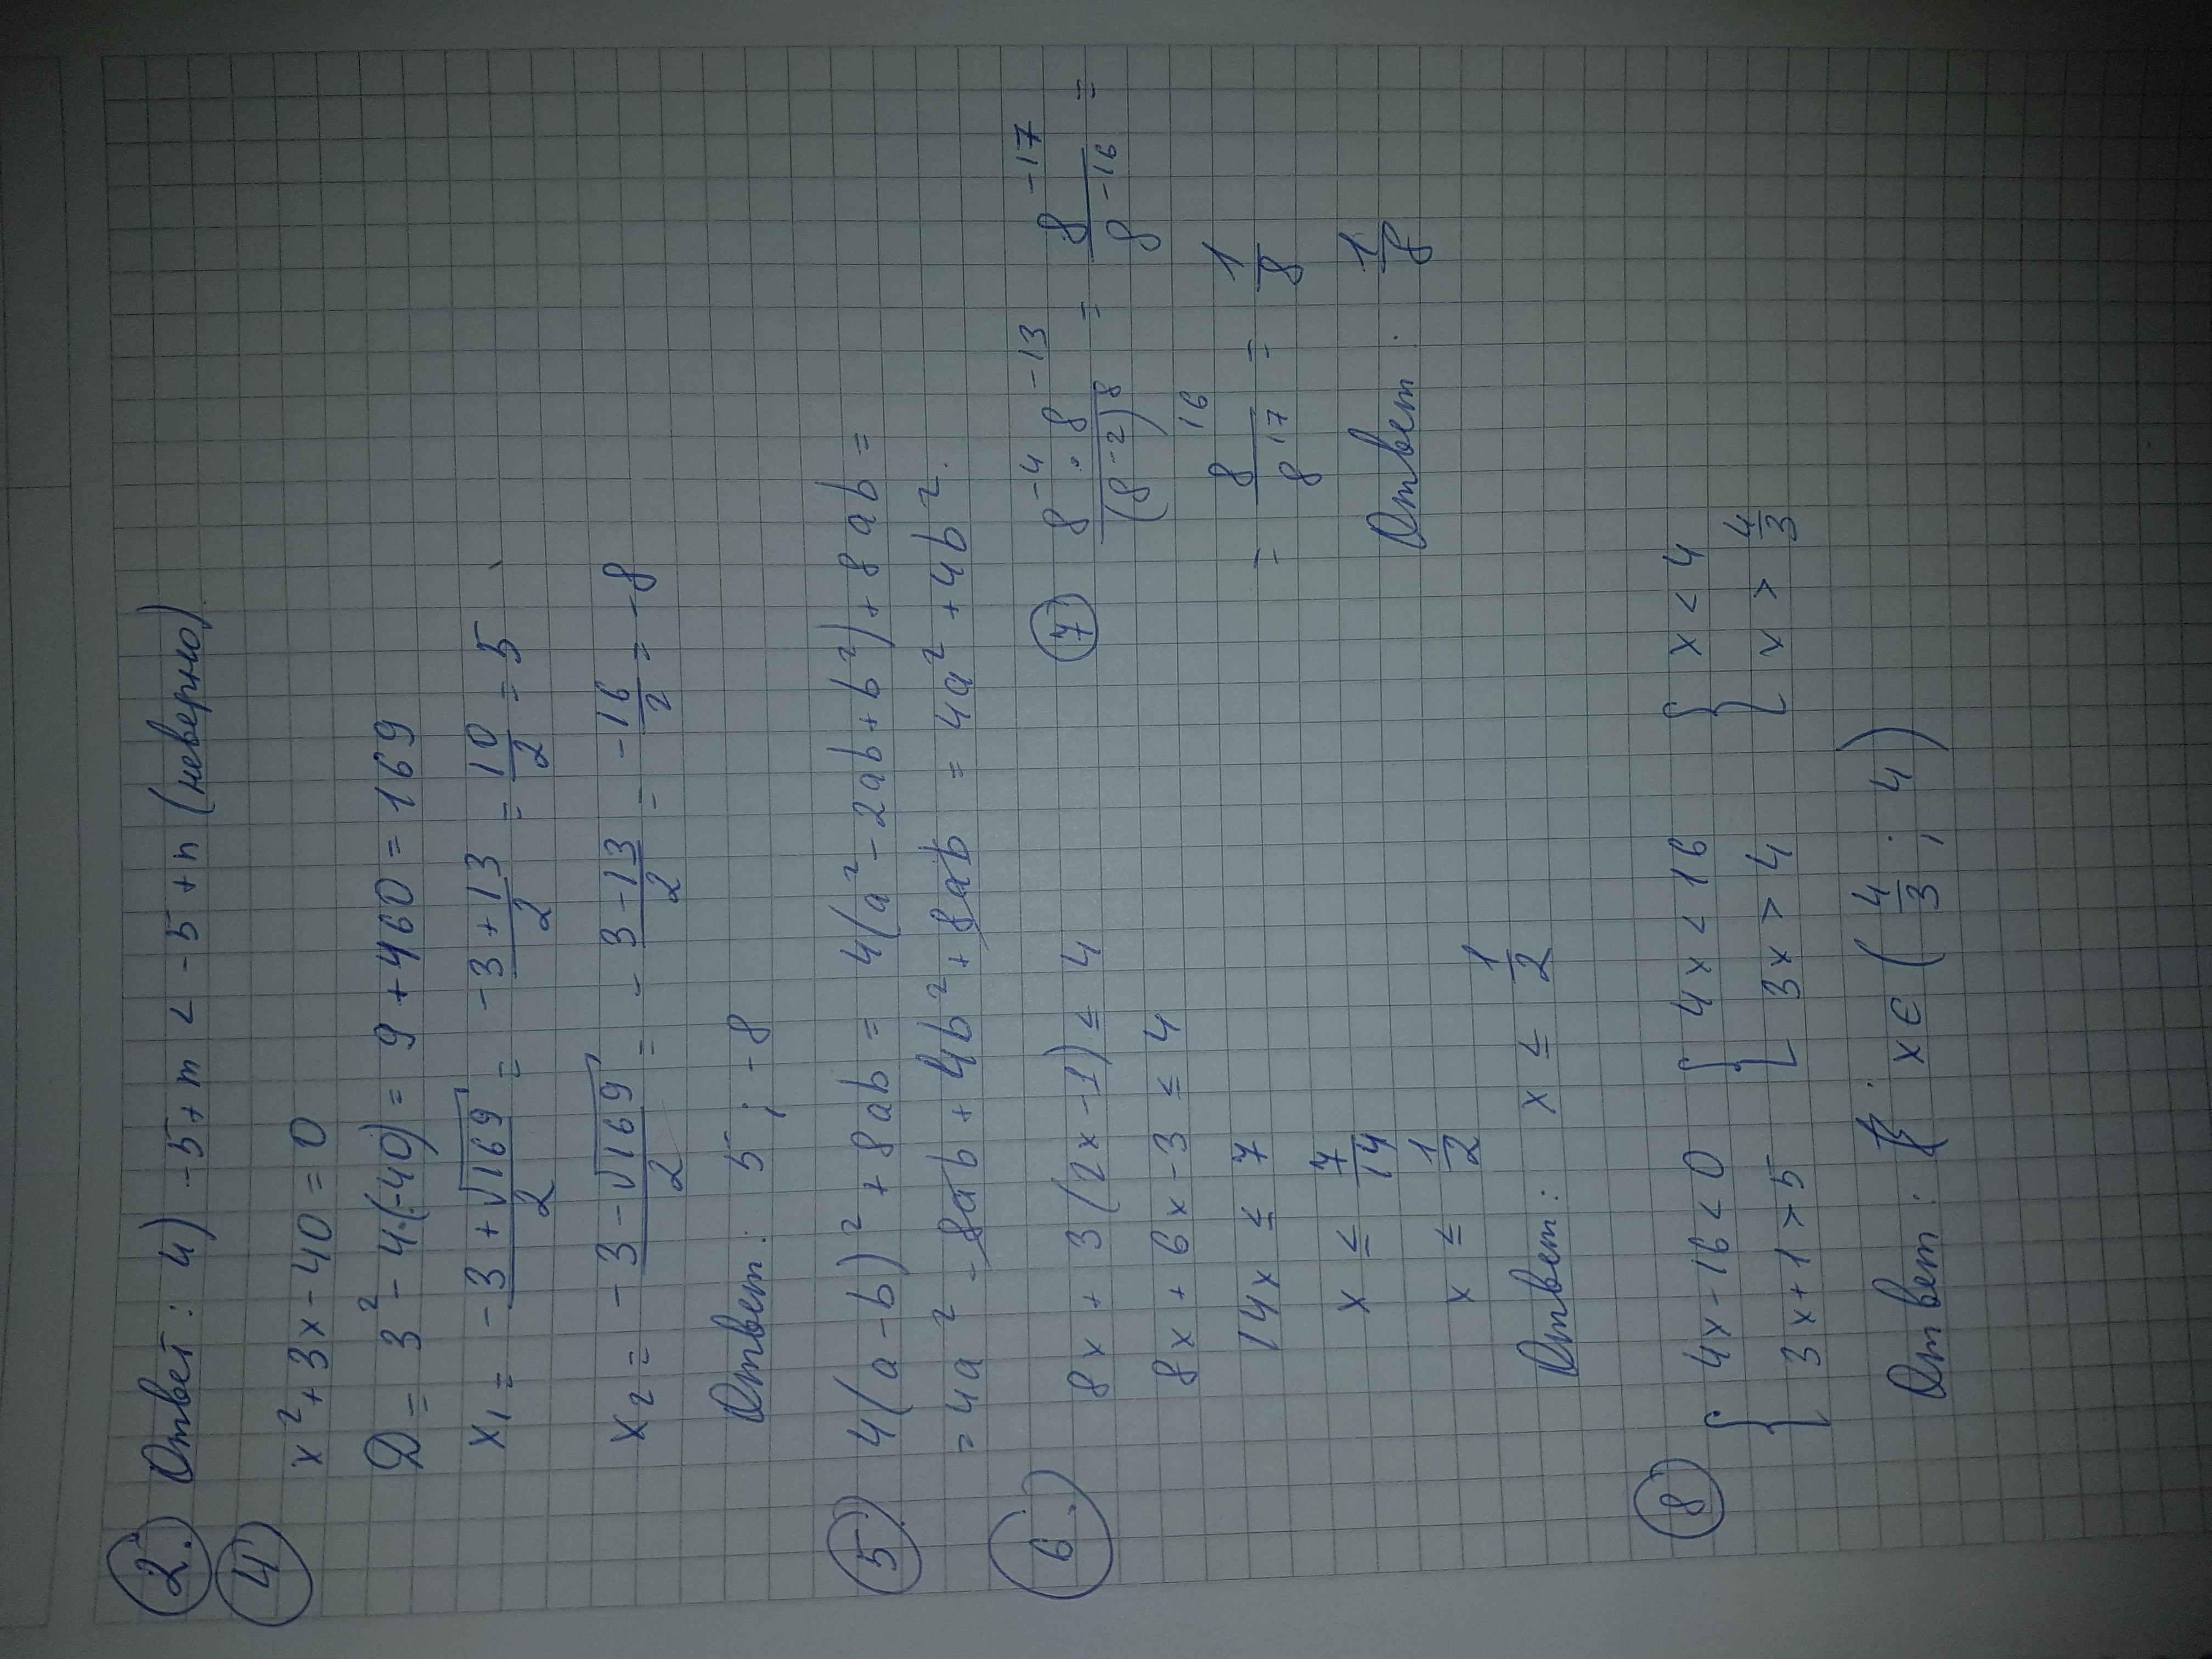 2. Ответ: 4) -5+m < -5+n (неверно)
4 x²+3x-40=0
D = 3² - 4·(-40) = 9 + 460 = 169
x₁ = (-3+√169)/2 = (-3+13)/2 = 10/2 = 5
x₂ = (-3-√169)/2 = (-3-13)/2 = -16/2 = -8
Ответ: 5 ; -8
5. 4(a-b)² + 8ab = 4(a² - 2ab + b²) + 8ab =
= 4a² - 8ab + 4b² + 8ab = 4a² + 4b².
6. 8x + 3(2x-1) ≤ 4
8x + 6x - 3 ≤ 4
14x ≤ 7
x ≤ 7/14
x ≤ 1/2
Ответ: x ≤ 1/2
7 (8⁻⁴ · 8⁻¹³)/(8⁻²)⁸ = 8⁻¹⁷/8⁻¹⁶ =
= 8¹⁶/8¹⁷ = 1/8
Ответ: 1/8
8 { 4x-16<0 { 4x < 16 { x < 4
3x+1>5 3x > 4 x > 4/3
Ответ: x ∈ (4/3 ; 4)